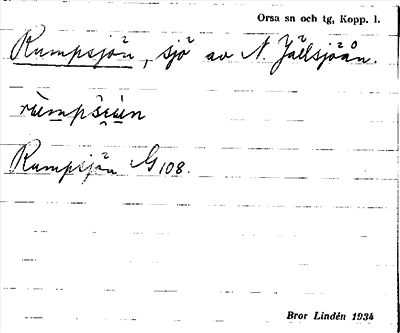 Orsa sn och tg, Kopp. l.
Rumpsjön, sjö av N. Jällsjöån.
Rumpsjön G 108.
Bror Lindén 1934